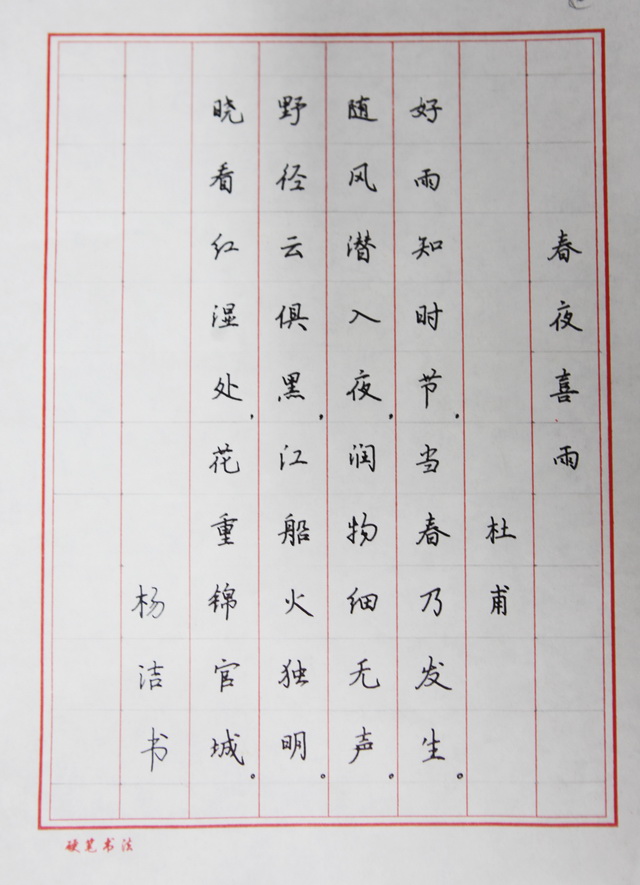 春夜喜雨
杜甫
好雨知时节,当春乃发生。
随风潜入夜,润物细无声。
野径云俱黑,江船火独明。
晓看红湿处,花重锦官城。
杨洁书
硬笔书法